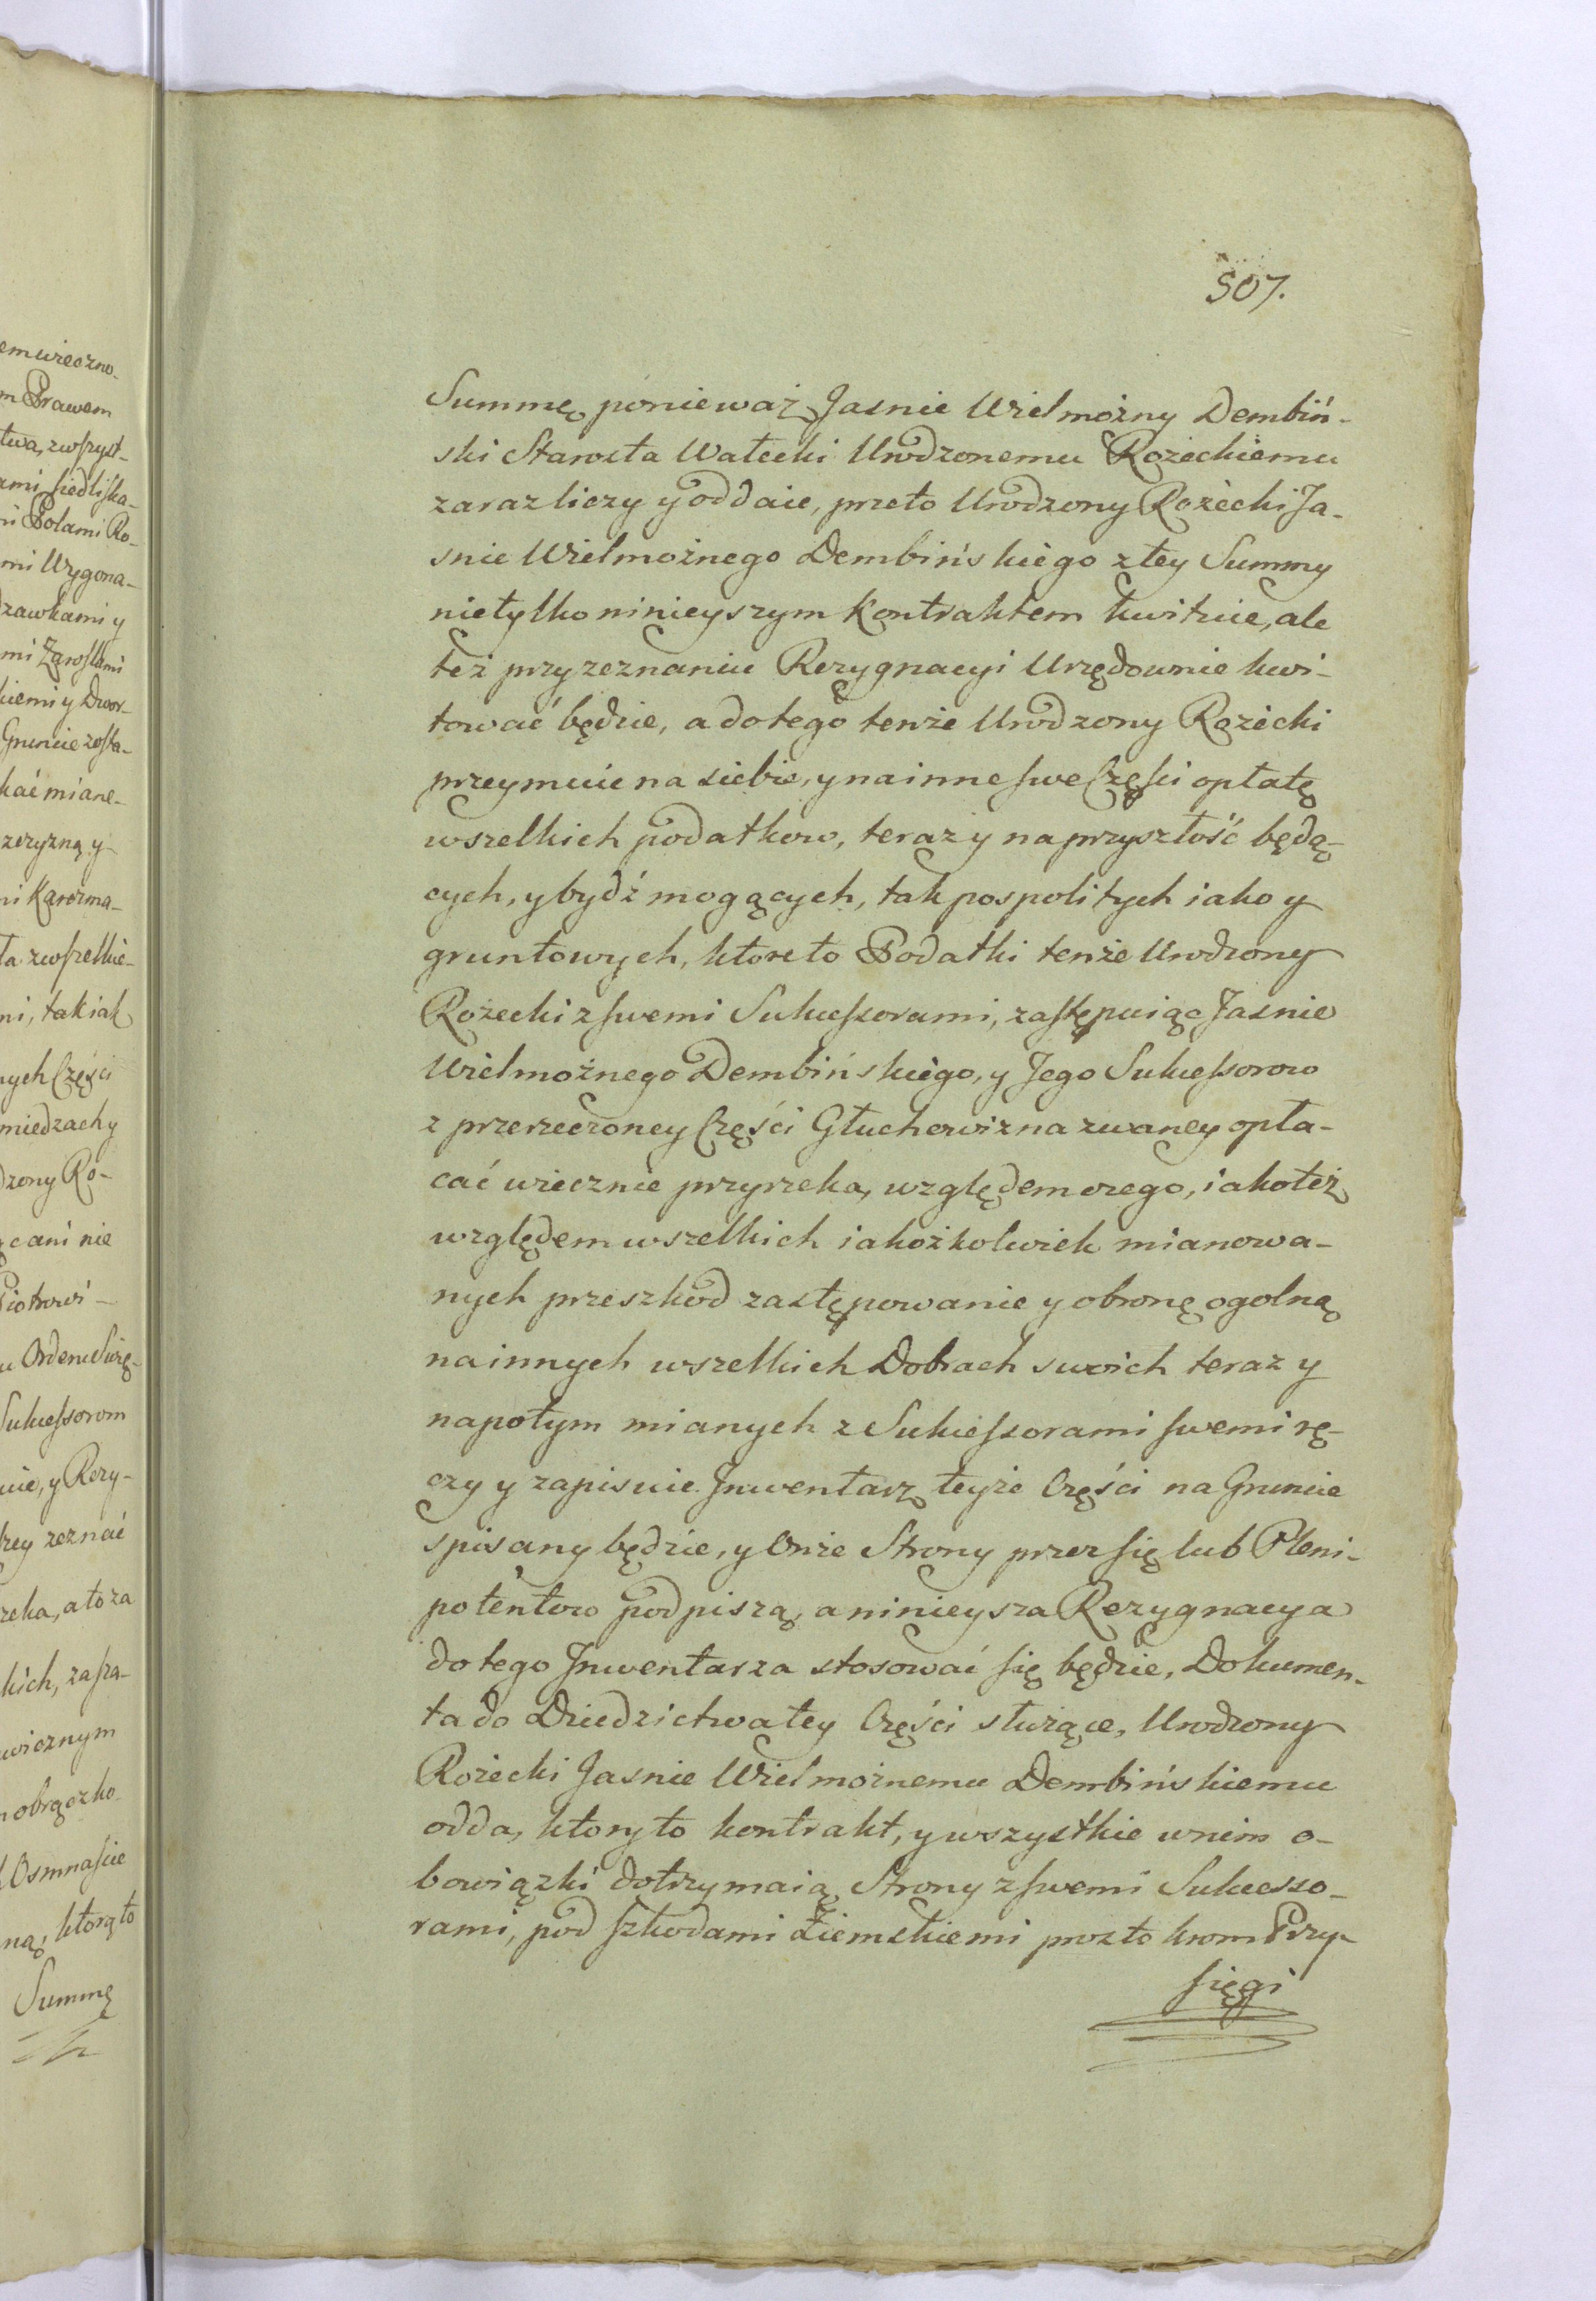 emwieczno-
m Prawem
twa, zwszyst-
ami, siedliska-
Polami Ro-
mi Wygona-
zawkami y
mi Zarosлami
kiemi y Dwor-
Gruncie zosta-
kać miane-
zeryzną y-
ni Karczma-
ta zwszelkie-
ni, tak iak
nych Części
miedzach y
dzony Ro-
ąc ani nie
Piotrowi-
u Orderu Swię-
Sukcessorom
uie, y Rezy-
rzey zeznać
rzeka, a to za
kich, zasza-
wicznym
obrączko
Osmnaście
ną, ktorą to
Summę
507.
Summę, ponieważ Jasnie Wielmożny Dembiń-
ski Starosta Wałecki Urodzonemu Rożeckiemu
zaraz liczy y oddaie, przeto Urodzony Rożecki Ja-
snie Wielmożnego Dembińskiego z tey Summy
nietylko ninieyszym Kontraktem kwituie, ale
też przy zeznaniu Rezygnacyi Urzędownie kwi-
tować będzie, a do tego tenże Urodzony Rożecki
przeymuie na siebie, y na inne swe Części opłatę
wszelkich podatkow, teraz y na przyszłość będą-
cych, y bydź mogących, tak pospolitych iako y
gruntowych, ktore to Podatki tenże Urodzony
Rożecki z swemi Sukcessorami, zastępuiąc Jasnie
Wielmożnego Dembińskiego, y Jego Sukcessorow
z przerzeczoney Części Głuchowizna zwaney opła-
cać wiecznie przyrzeka, względem czego, iako też
względem wszelkich iakożkolwiek mianowa-
nych przeszkod zastępowanie y obronę ogolną
na innych wszelkich Dobrach swoich teraz y
napotym mianych z Sukcessorami swemi rę-
czy y zapisuie. Jnwentarz teyże Części na Gruncie
spisany będzie, y Onże Strony przez się lub Pleni-
potentow podpiszą, a ninieysza Rezygnacya
do tego Jnwentarza stosować się będzie, Dokumen-
ta do Dziedzictwa tey Części służące, Urodzony
Rożecki Jasnie Wielmożnemu Dembińskiemu
odda, ktory to kontrakt, y wszystkie w nim o-
bowiązki dotrzymaią Strony z swemi Sukcesso-
rami, pod szkodami Ziemskiemi prosto krom Przy-
sięgi